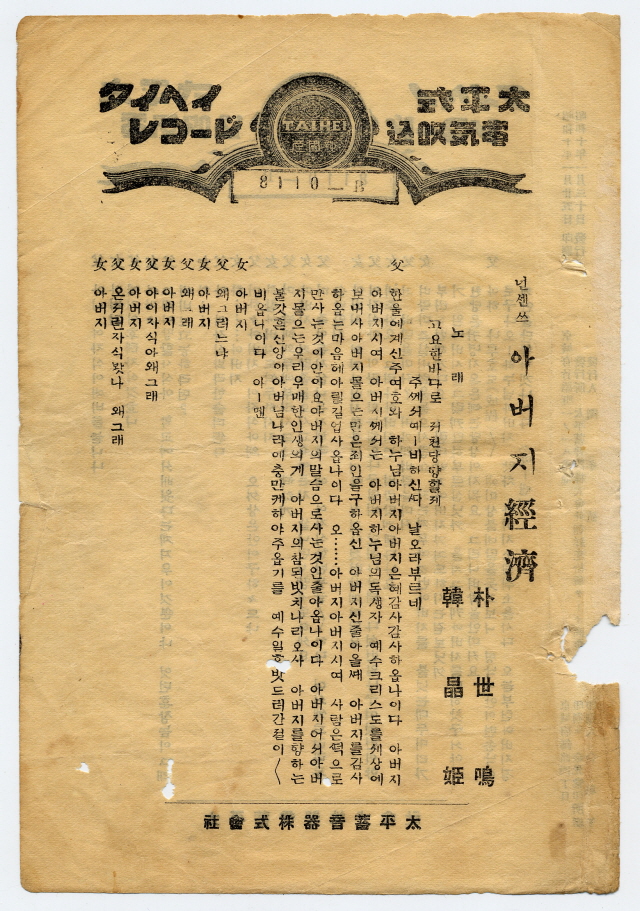 タイヘイ
レコード
TAIHEI
太平式
電気吹込
8110－B
넌센쓰 아버지經濟
朴世鳴
韓晶姬
노래
고요한바다로 저천당향할제
주께서예ー비하신다 날오라부르네
父 한울에게신주여호와 하누님아버지아버지은혜감사감사하옵나이다 아버지
아버지시여 아버지께서는 아버지하누님의독생자 예수크리스도를세상에
보내사아버지몰으는만은죄인을구하옵신 아버지신줄아올때 아버지를감사
하옵는마음헤아릴길업사옵나이다 오……아버지아버지시여 사람은떡으로
만사는것이안이요아버지의말슴으로사는것인줄아옵나이다 아버지어서아버
지몰으는우리우매한인생의게 아버지의참된빗치나리오사 아버지를향하는
불갓흔신앙이아버님나라에충만케하야주옵기를 예수일홈밧드러간절이〱
비옵나이다 아ー멘
女 아버지
父 왜그러느냐
女 아버지
父 왜그래
女 아버지
父 아이자식아왜그래
女 아버지
父 온저런자식봣나 왜그래
女 아버지
太平蓄音器株式會社